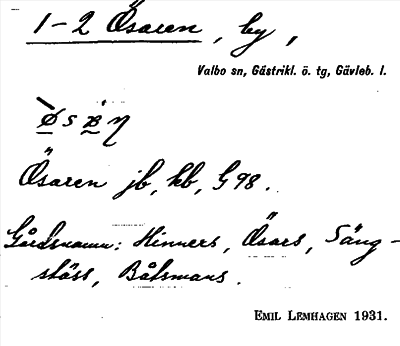 1-2 Ösaren, by,
Valbo sn, Gästrikl. ö. tg, Gävleb. l.
Ösaren jb, kb, G98.
Gårdsnamn: Hinners, Ösars, Säng-
Båtsmans.
EMIL LEMHAGEN 1931.